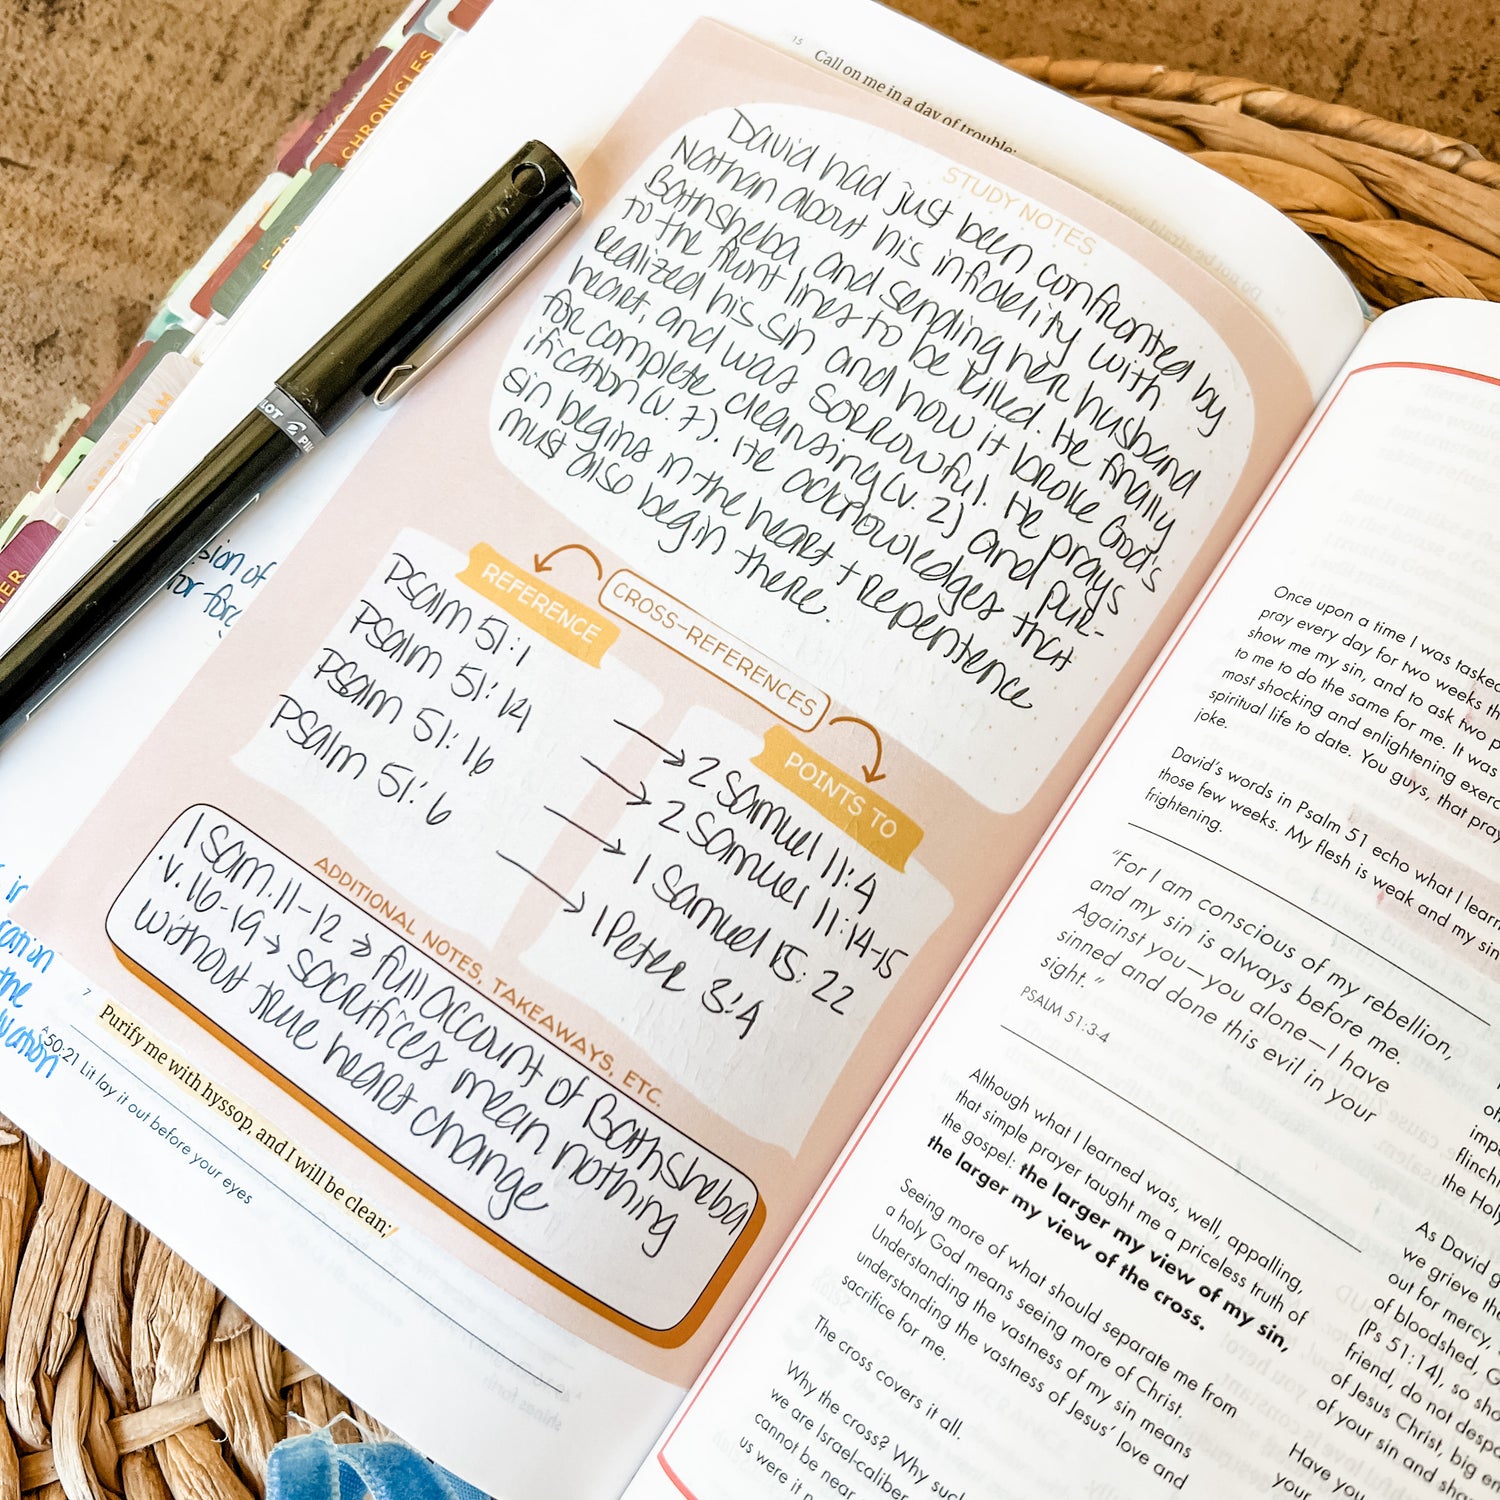 CHRONICLES
EZRA
NEHEMIAH
15 Call on me in a day of trouble;
STUDY NOTES
David had just been confronted by
Nathan about his infidelity with
Bathsheba and sending her husband
to the front lines to be killed. He finally
realized his sin and how it broke God's
heart, and was sorrowful. He prays
for complete cleansing (v. 2) and pur-
ification (v. 7). He acknowledges that
sin begins in the heart + repentence
must also begin there.
CROSS-REFERENCES
REFERENCE
POINTS TO
Psalm 51:1 → 2 Samuel 11:4
Psalm 51:14 → 2 Samuel 11:14-15
Psalm 51:16 → 1 Samuel 15:22
Psalm 51:6 → 1 Peter 3:4
ADDITIONAL NOTES, TAKEAWAYS, ETC.
1 Sam. 11-12 → full account of Bathsheba
· v. 16-19 → sacrifices mean nothing
without true heart change
sion of
for forg
7 Purify me with hyssop, and I will be clean;
A 50:21 Lit lay it out before your eyes
Once upon a time I was tasked
pray every day for two weeks th
show me my sin, and to ask two p
to me to do the same for me. It was
most shocking and enlightening exerc
spiritual life to date. You guys, that pray
joke.
David's words in Psalm 51 echo what I learn
those few weeks. My flesh is weak and my sin
frightening.
"For I am conscious of my rebellion,
and my sin is always before me.
Against you—you alone—I have
sinned and done this evil in your
sight."
PSALM 51:3-4
Although what I learned was, well, appalling,
that simple prayer taught me a priceless truth of
the gospel: the larger my view of my sin,
the larger my view of the cross.
Seeing more of what should separate me from
a holy God means seeing more of Christ.
Understanding the vastness of my sin means
understanding the vastness of Jesus' love and
sacrifice for me.
The cross covers it all.
Why the cross? Why suc
we are Israel-caliber
cannot be near
us were it n
flinchi
the Holy
As David g
we grieve th
out for mercy,
of bloodshed, G
(Ps 51:14), so sho
friend, do not despa
of Jesus Christ, big en
of your sin and shar
Have you
your